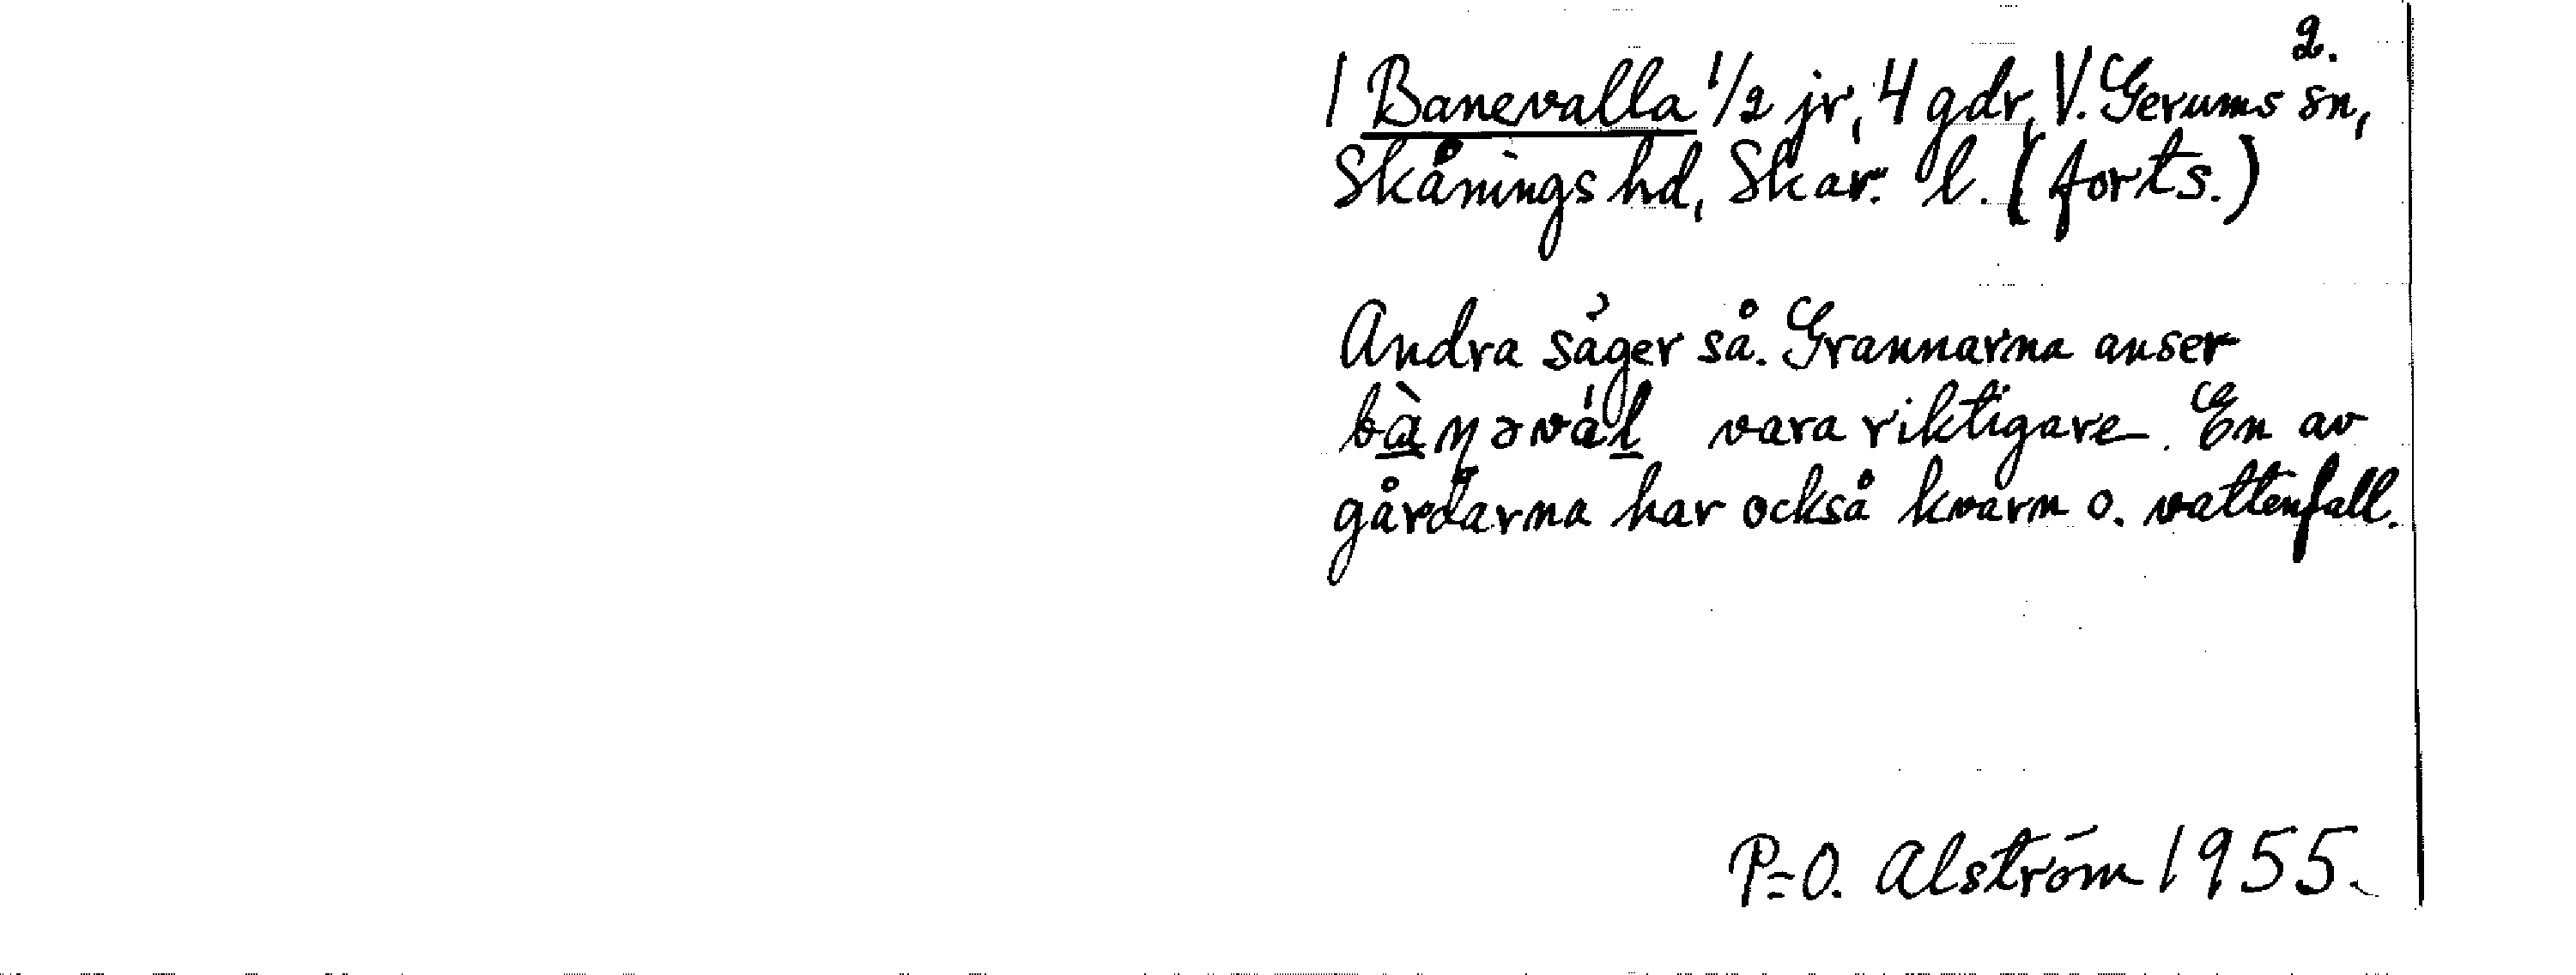 2.
1 Banevalla 1/2 jr, 4 gdr, V. Gerums sn,
Skånings hd, Skar. l. (forts.)
Andra säger så. Grannarna anser
bànəvál vara riktigare. En av
gårdarna har också kvarn o. vattenfall.
P-O. Alström 1955.